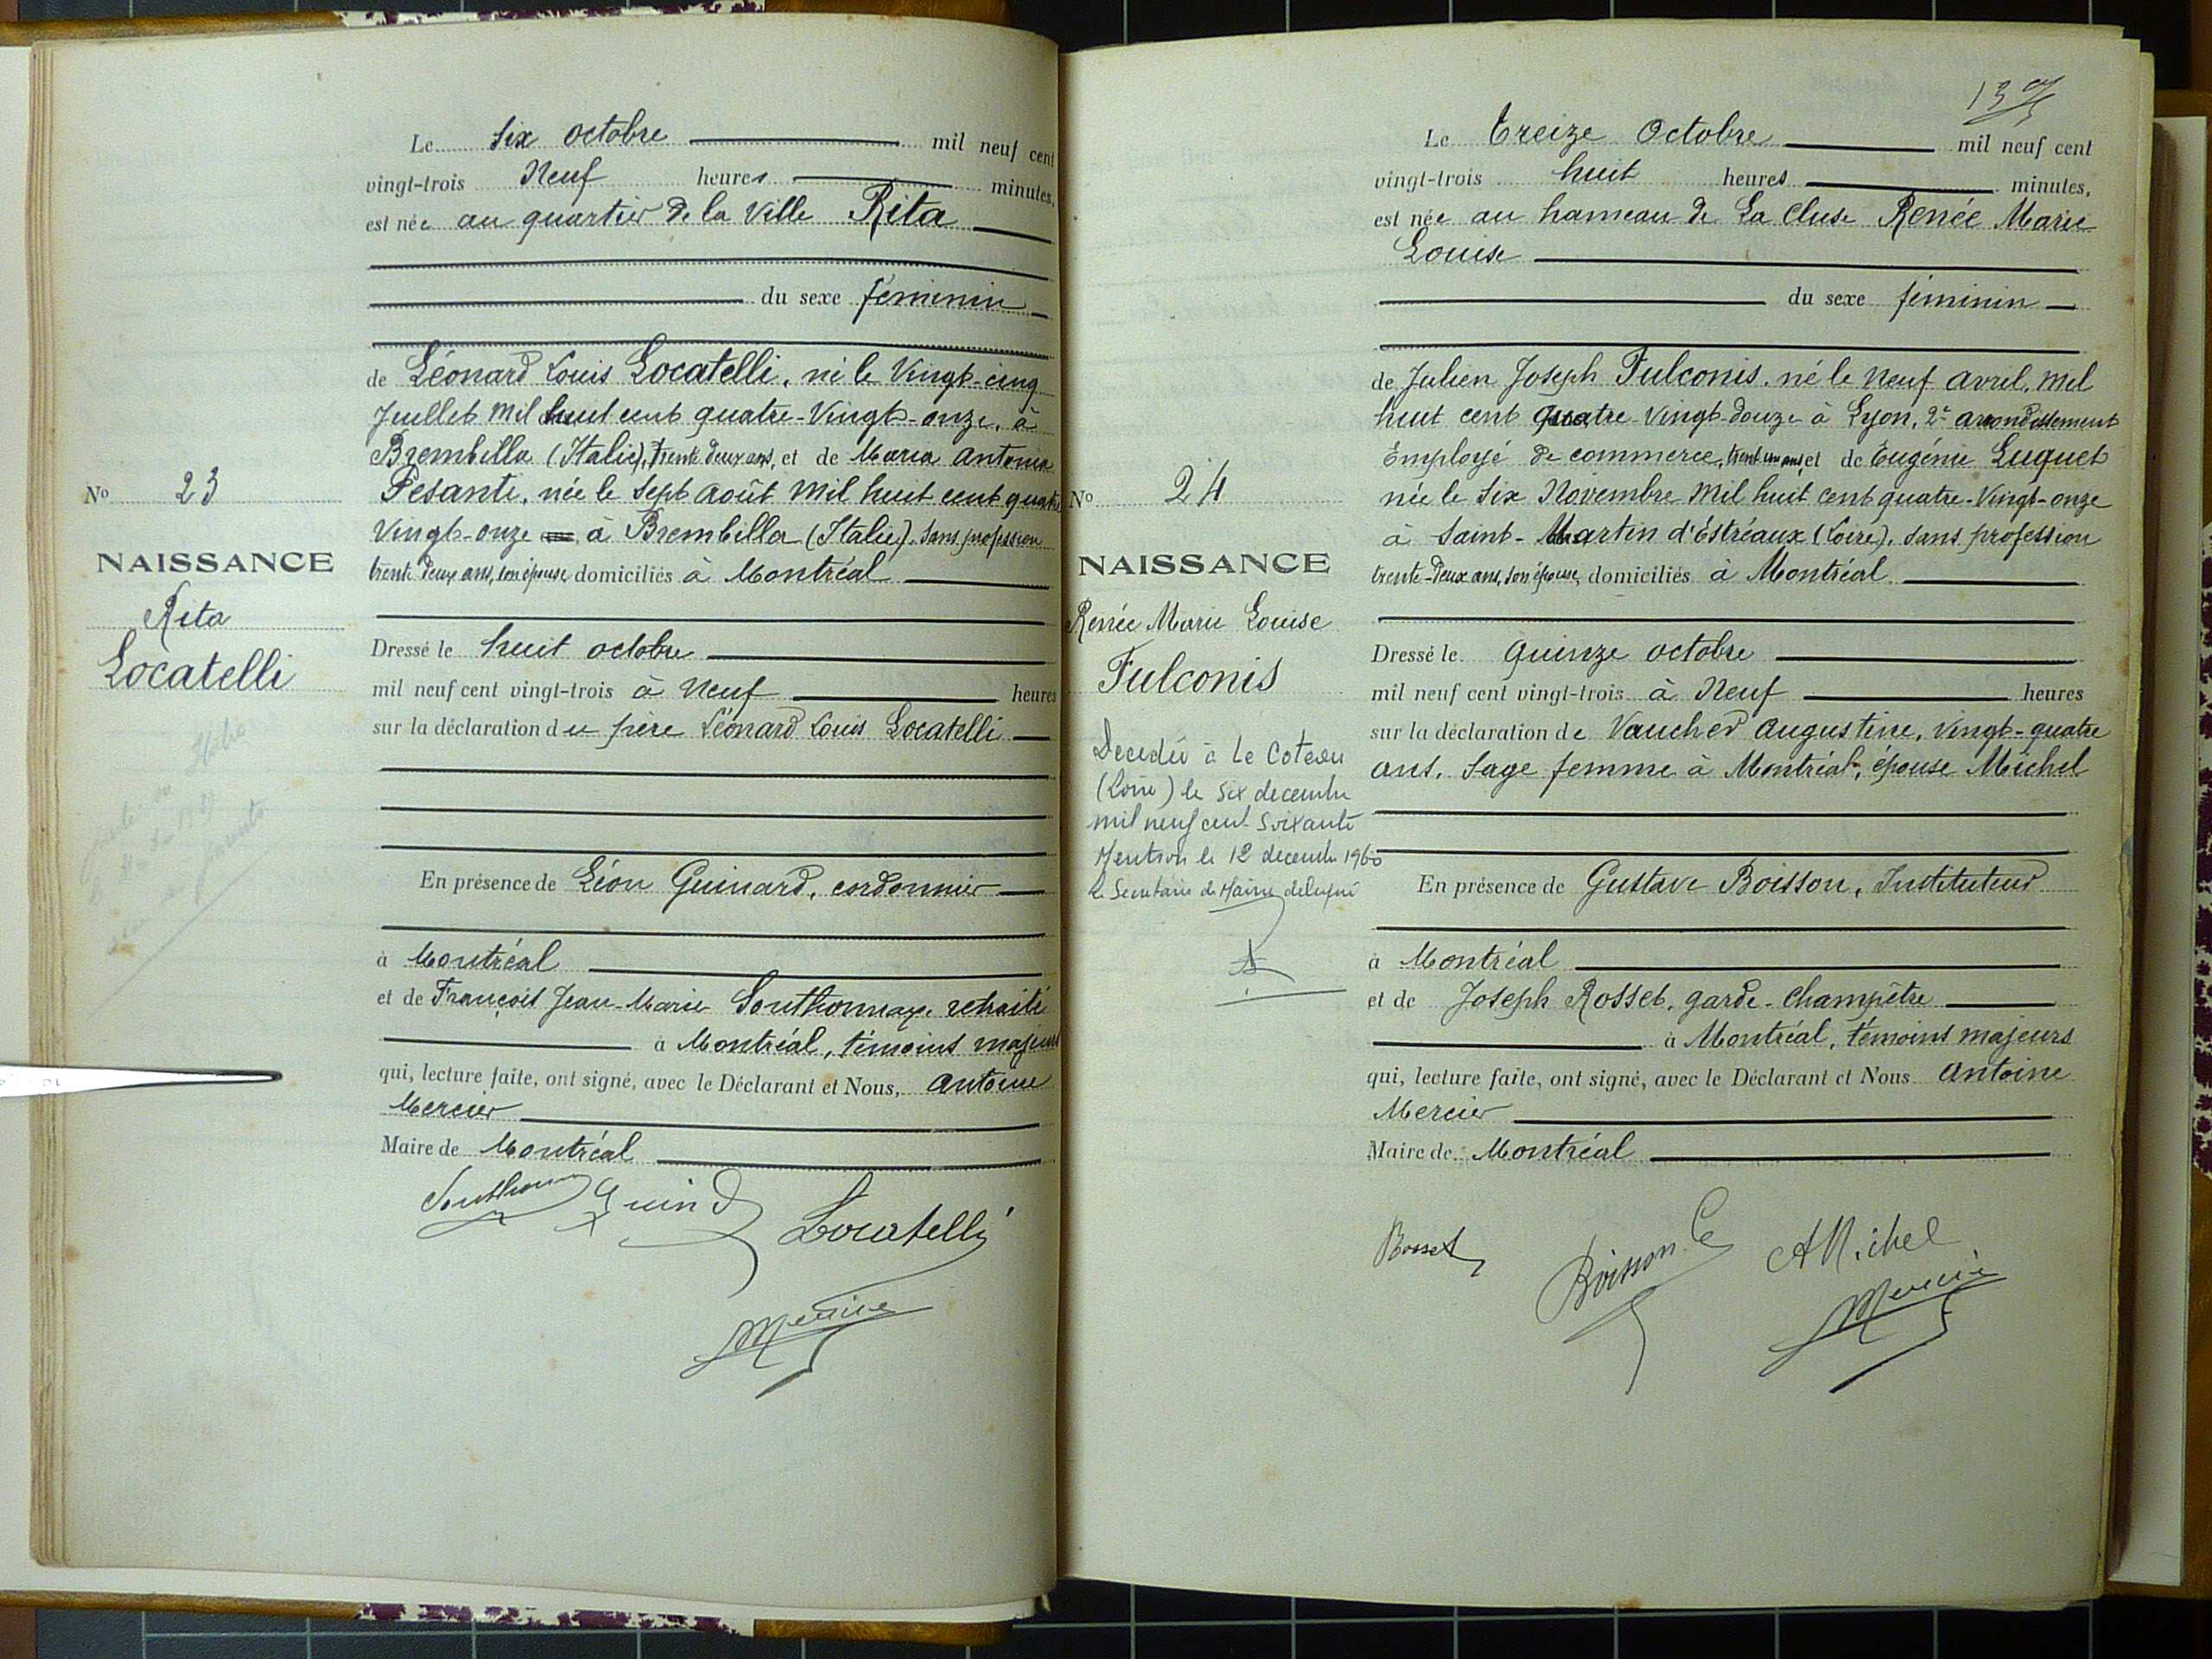 Le six octobre mil neuf cent
vingt-trois Neuf heures minutes,
est née au quartier de la Ville Rita
du sexe féminin
de Léonard Louis Locatelli, né le Vingt-cinq
Juillet mil huit cent quatre-Vingt-onze, à
Brembilla (Italie), trente deux ans, et de Maria Antonia
Pesanti, née le sept août mil huit cent quatre
Vingt-onze à Brembilla (Italie), sans profession
trente deux ans, son épouse domiciliés à Montréal
No 23
NAISSANCE
Rita
Locatelli
Dressé le huit octobre
mil neuf cent vingt-trois à Neuf heures
sur la déclaration du père Léonard Louis Locatelli
En présence de Léon Guinard, cordonnier
à Montréal
et de François Jean-Marie Southonnax retraité
à Montréal, témoins majeurs
qui, lecture faite, ont signé, avec le Déclarant et Nous, Antoine
Mercier
Maire de Montréal
Locatelli
Mercier
13
Le treize Octobre mil neuf cent
vingt-trois huit heures minutes,
est née au hameau de La Cluse Renée Marie
Louise
du sexe féminin
de Julien Joseph Fulconis, né le neuf avril, mil
huit cent quatre-vingt-douze à Lyon, 2e arrondissement
Employé de commerce, trent un ans, et de Eugénie Luquet
née le six Novembre mil huit cent quatre-Vingt-onze
à Saint-Martin d'Estréaux (Loire), sans profession
trente-deux ans, son épouse, domiciliés à Montréal
No 24
NAISSANCE
Renée Marie Louise
Fulconis
Décédée à Le Coteau
(Loire) le six décembre
mil neuf cent soixante
Mention le 12 décembre 1960
Le Secrétaire de Mairie délégué
Dressé le quinze octobre
mil neuf cent vingt-trois à Neuf heures
sur la déclaration de Vaucher Augustine, vingt-quatre
ans, sage femme à Montréal, épouse Michel
En présence de Gustave Boisson, Instituteur
à Montréal
et de Joseph Rosset, garde-champêtre
à Montréal, témoins majeurs
qui, lecture faite, ont signé, avec le Déclarant et Nous Antoine
Mercier
Maire de Montréal
Rosset
Boisson G
A Michel
Mercier